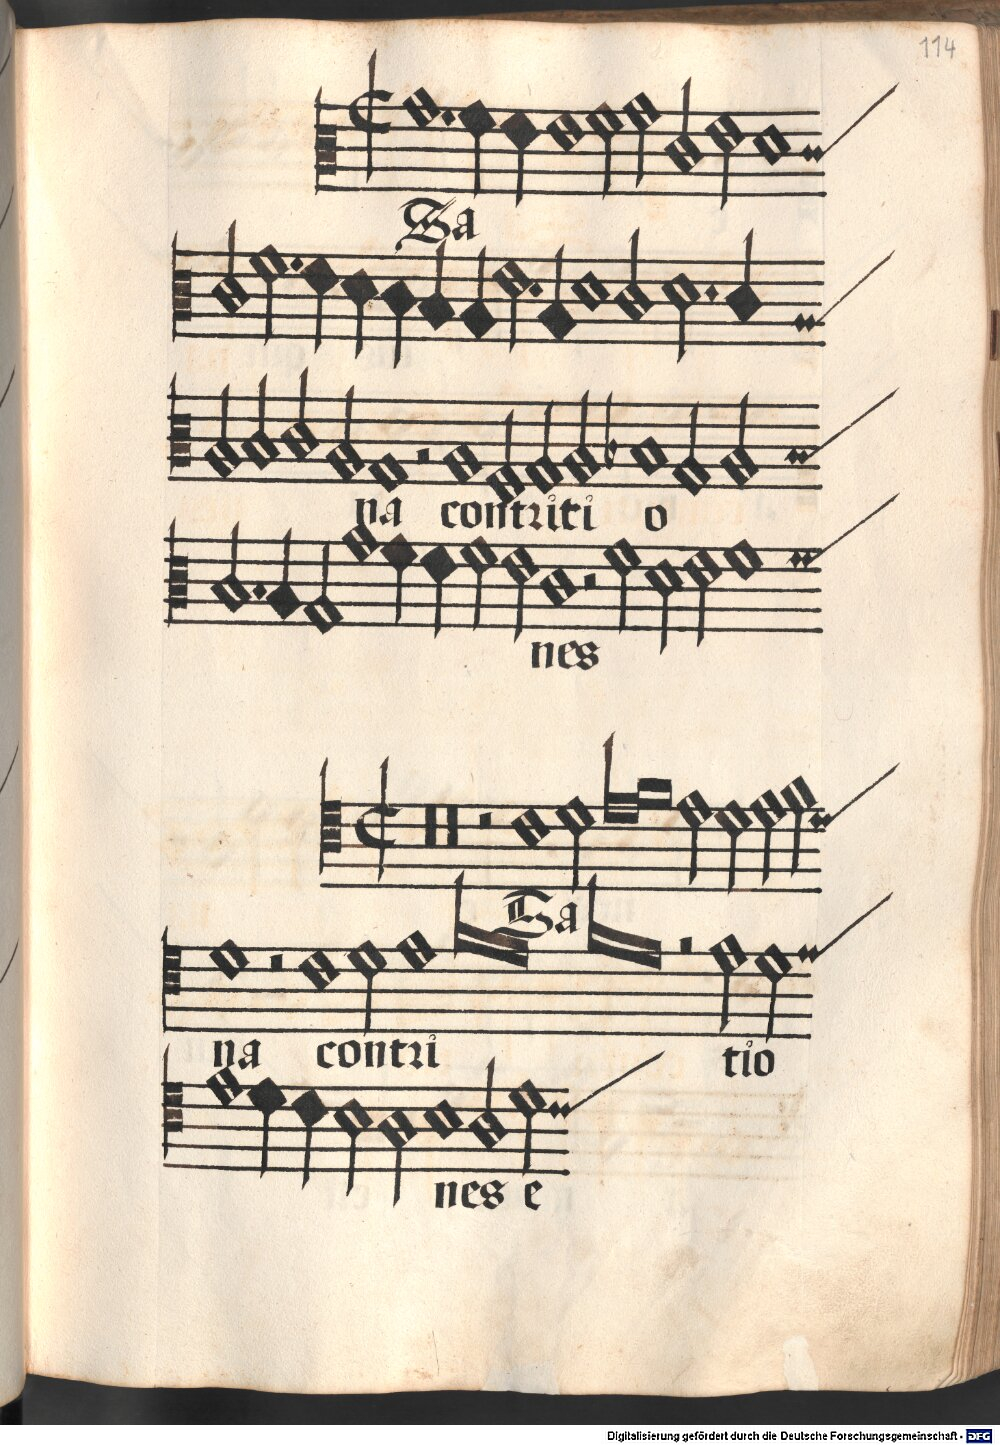 114
Sa
na contriti o
nes
Sa
na contri tio
nes e
Digitalisierung gefördert durch die Deutsche Forschungsgemeinschaft - DFG